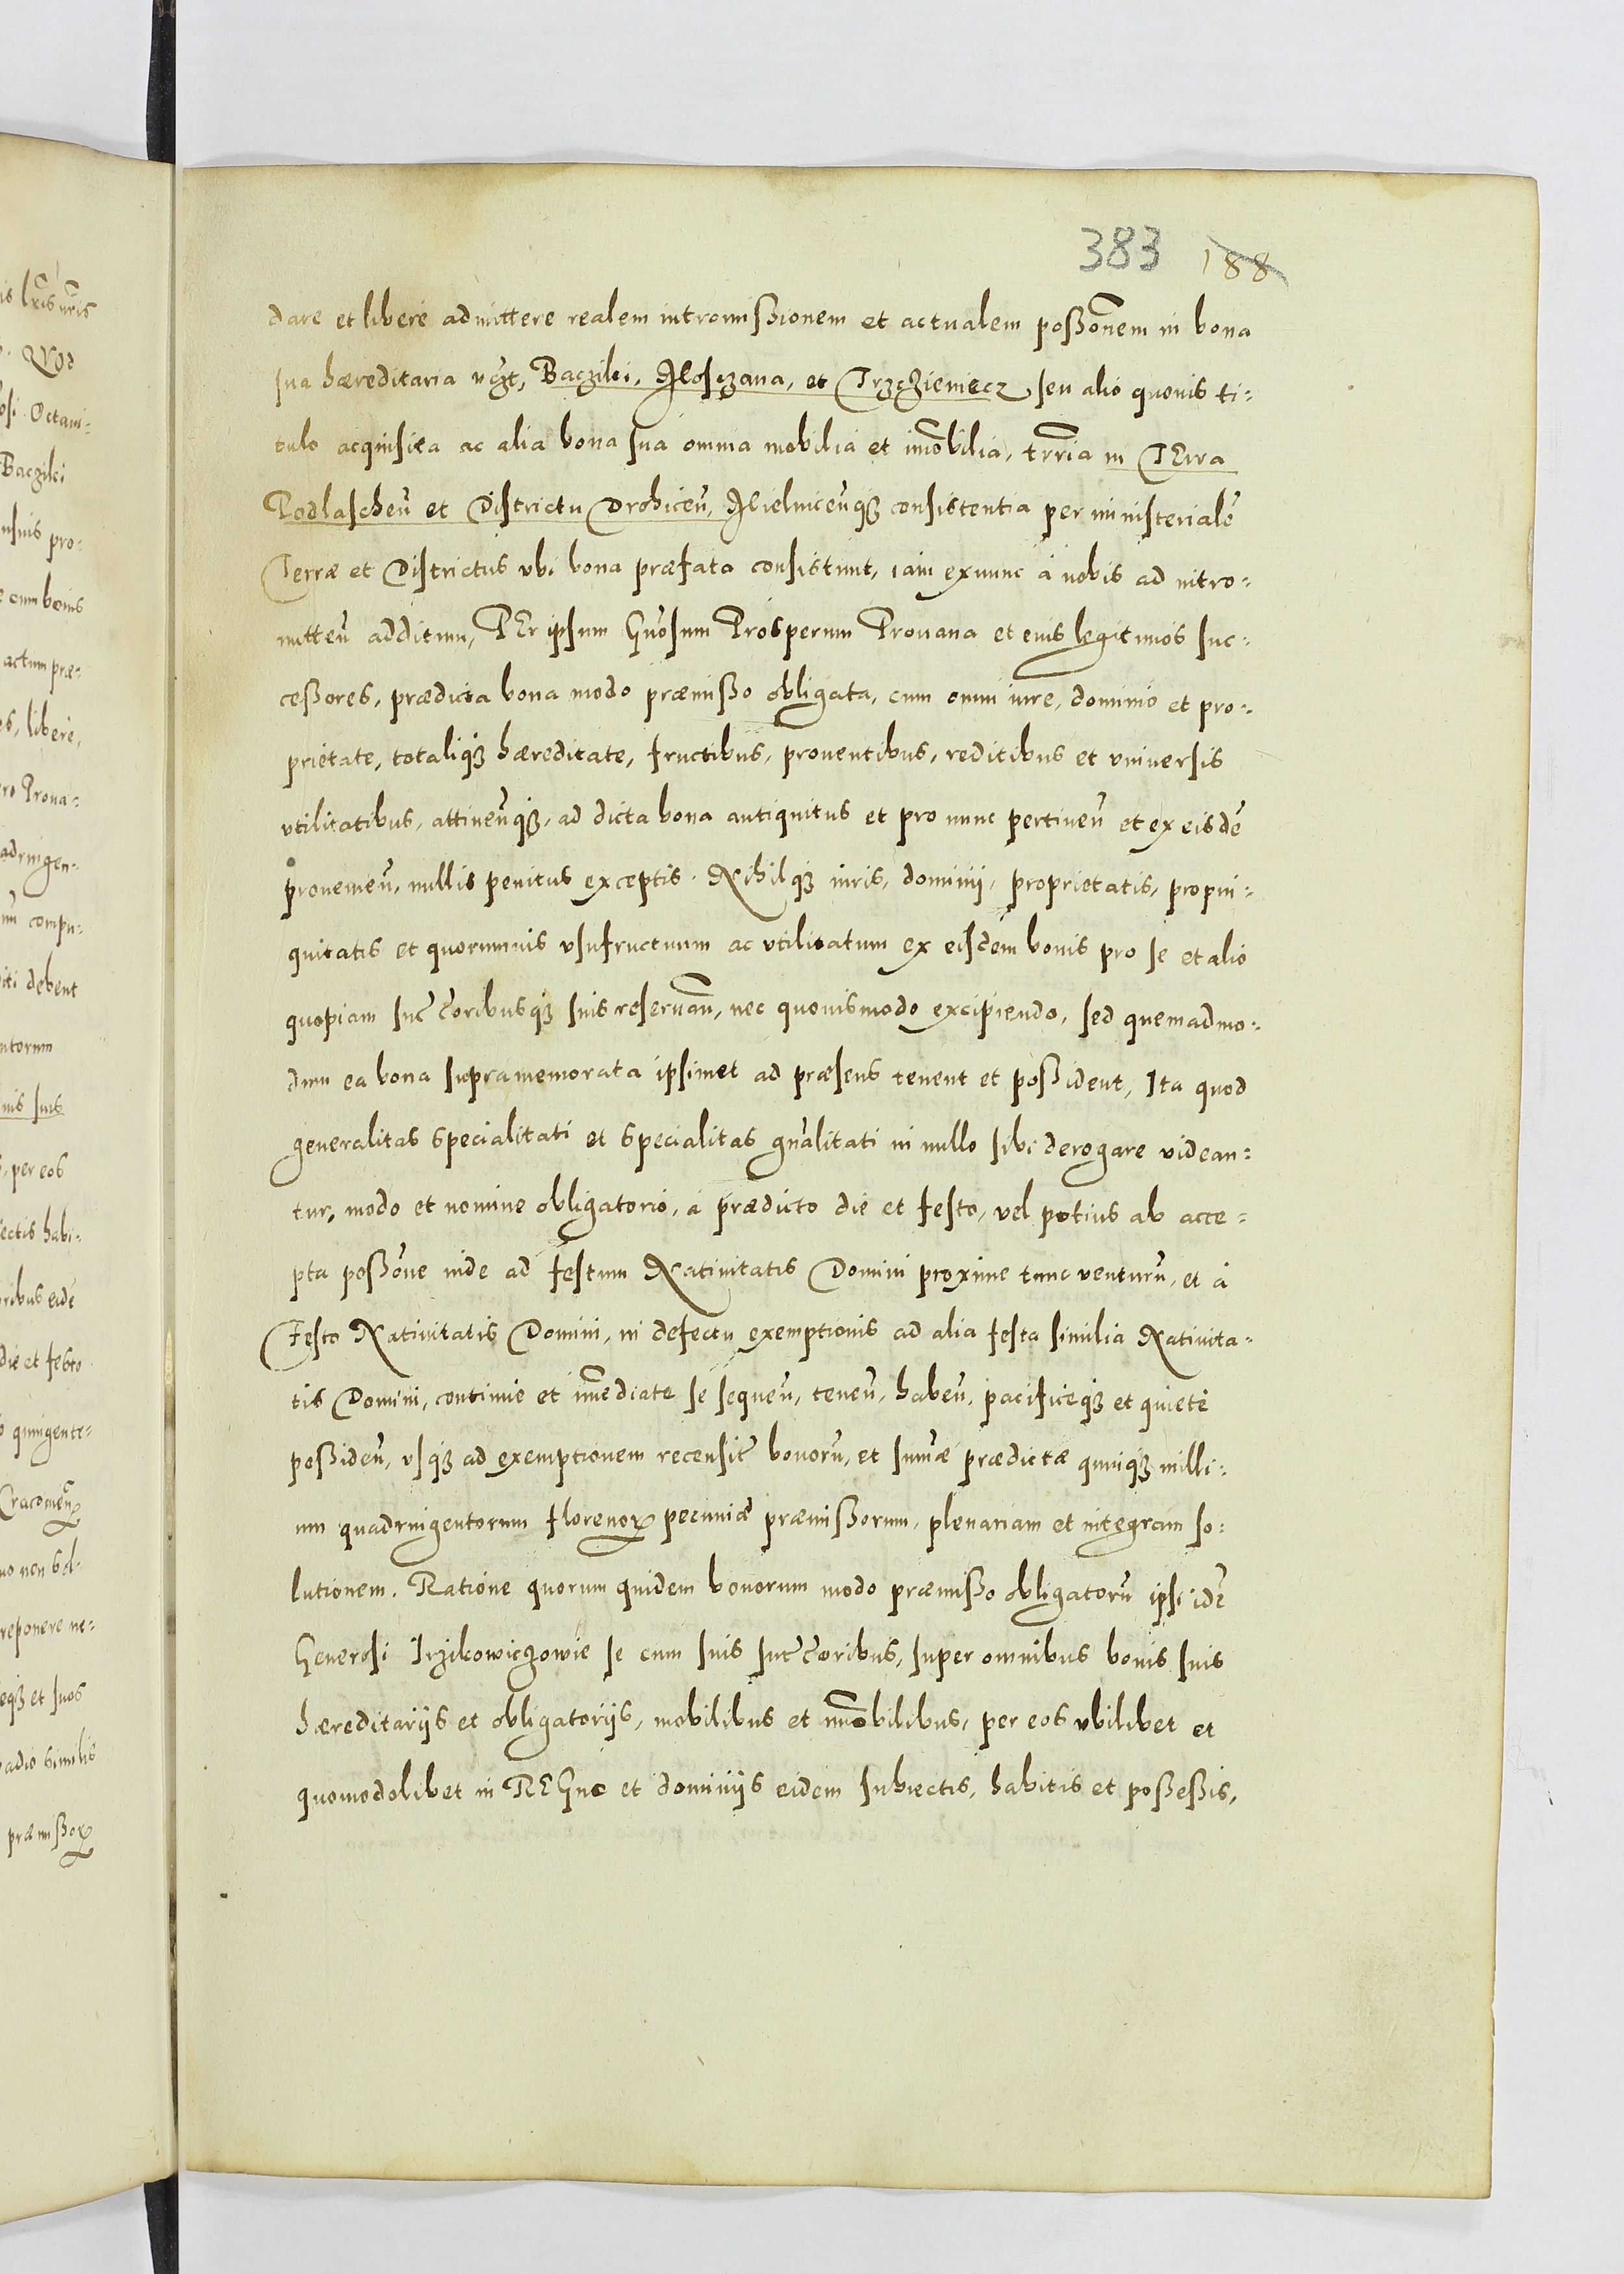 383 188
dare et libere admittere realem intromißionem et actualem poßonem in bona
sua hæreditaria vczt, Baczilei, Mosczana, et Trzczieniecz seu alio quouis ti=
tulo acquisita ac alia bona sua omnia mobilia et imobilia, trria in TErra
Podlascheñ et Districtu Drohiceñ, Mielniceñq3 consistentia per ministerialē
Terræ et Districtus vbi bona præfata consistunt, iam exnunc à nobis ad intro=
mitteñ additum, PEr ipsum Gñosum Prosperum Prouana et eius legitimos suc=
ceßores, prædicta bona modo præmißo obligata, cum omni iure, dominio et pro=
prietate, totaliq3 hæreditate, fructibus, prouentibus, reditibus et vniuersis
vtilitatibus, attineñq3, ad dicta bona antiquitus et pro nunc pertineñ et ex eisdē
prouenieñ, nullis penitus exceptis. Nihilq3 iuris, dominij, proprietatis, propin=
quitatis et quorumuis vsufructuum ac vtilitatum ex eisdem bonis pro se et alio
quopiam succoribusq3 suis reseruañ, nec quouismodo excipiendo, sed quemadmo=
dum ea bona supramemorata ipsimet ad præsens tenent et poßident, Ita quod
generalitas specialitati et specialitas gñalitati in nullo sibi derogare videan=
tur, modo et nomine obligatorio, à prædicto die et festo, vel potius ab acce=
pta poßone inde ad festum Natiuitatis Domini proxime tunc venturū, et à
Festo Natiuitatis Domini, in defectu exemptionis ad alia festa similia Natiuita=
tis Domini, continue et imediate se sequeñ, teneñ, habeñ, pacificeq3 et quiete
poßideñ, vsq3 ad exemptionem recensit bonorū, et sumæ prædictæ quinq3 milli=
um quadringentorum florenor pecuniæ præmißorum, plenariam et integram so=
lutionem. Ratione quorum quidem bonorum modo præmißo obligatorū ipsi idē
Generosi Irzikowiczowie se cum suis succoribus, super omnibus bonis suis
hæreditarijs et obligatorijs, mobilibus et imobilibus, per eos vbilibet et
quomodolibet in REGno et dominijs eidem subiectis, habitis et poßeßis,